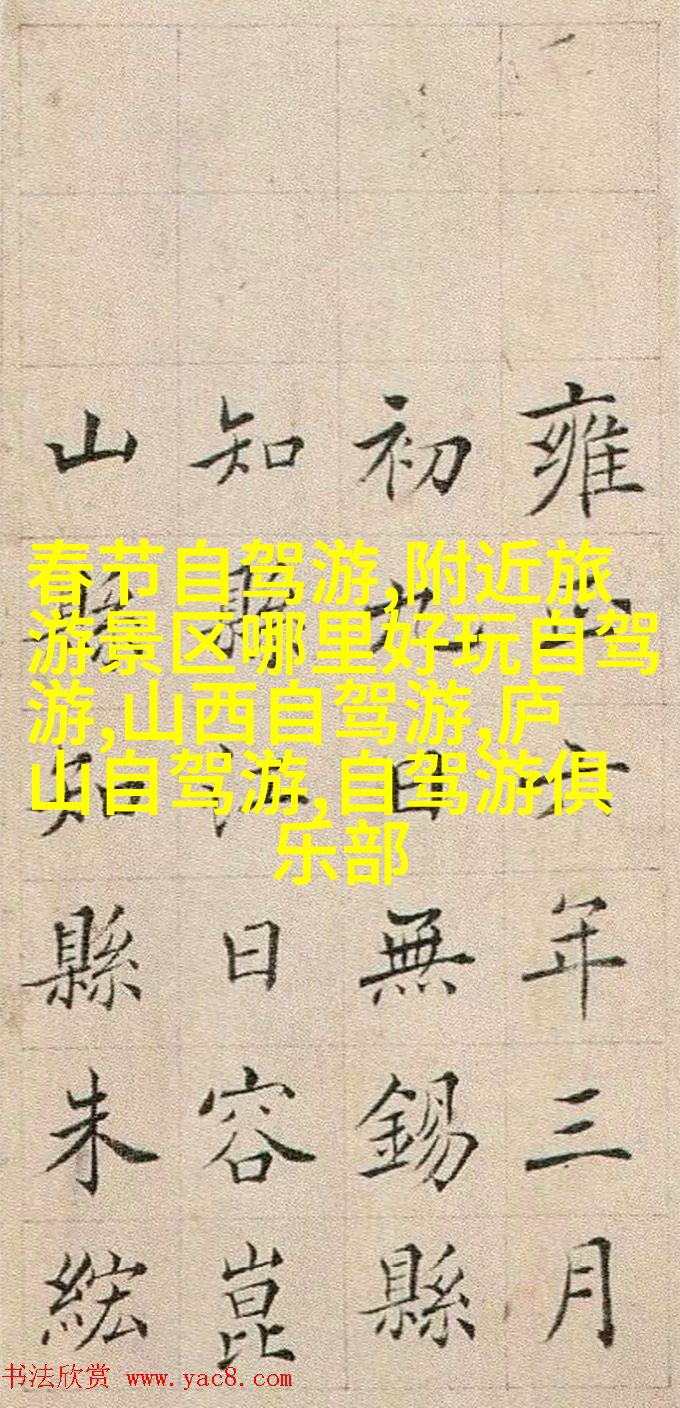 春节自驾游,附近旅
游景区哪里好玩自驾
游,山西自驾游,庐
山自驾游,自驾游俱
乐部
雍正六年三月
初九日無錫縣
知縣江日容崑
山縣知縣朱紘
书法欣赏 www.yac8.com